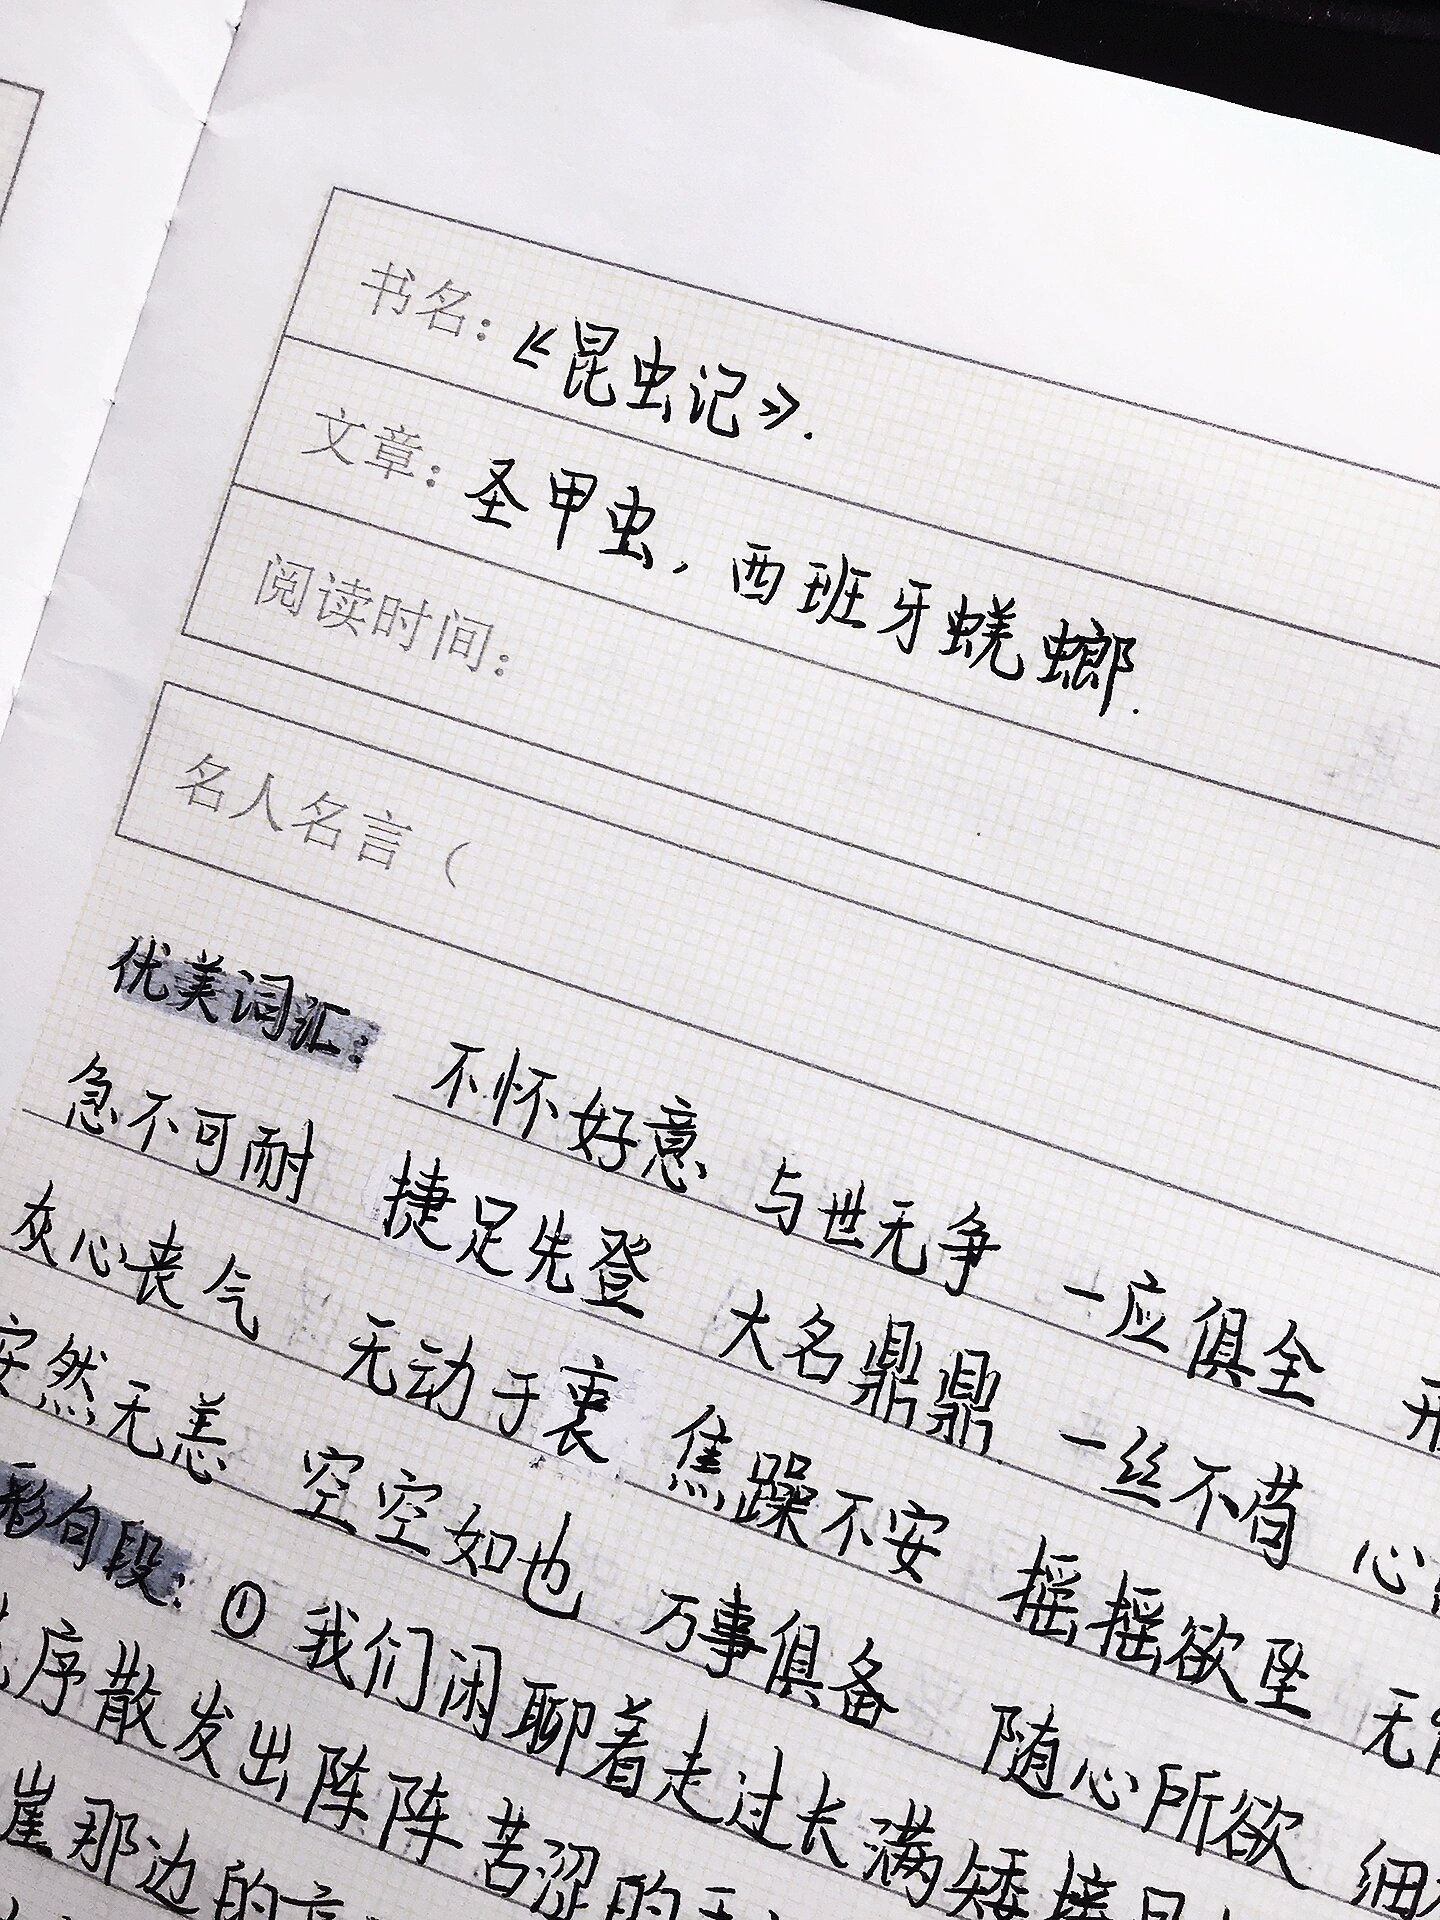 书名：《昆虫记》.
文章：圣甲虫，西班牙蜣螂.
阅读时间：
名人名言（
优美词汇： 不怀好意 与世无争 一应俱全
急不可耐 捷足先登 大名鼎鼎 一丝不苟 心
灰心丧气 无动于衷 焦躁不安 摇摇欲坠 无
安然无恙 空空如也 万事俱备 随心所欲 细
彩句段：① 我们闲聊着走过长满矮接骨
序散发出阵阵苦涩的
崖那边的